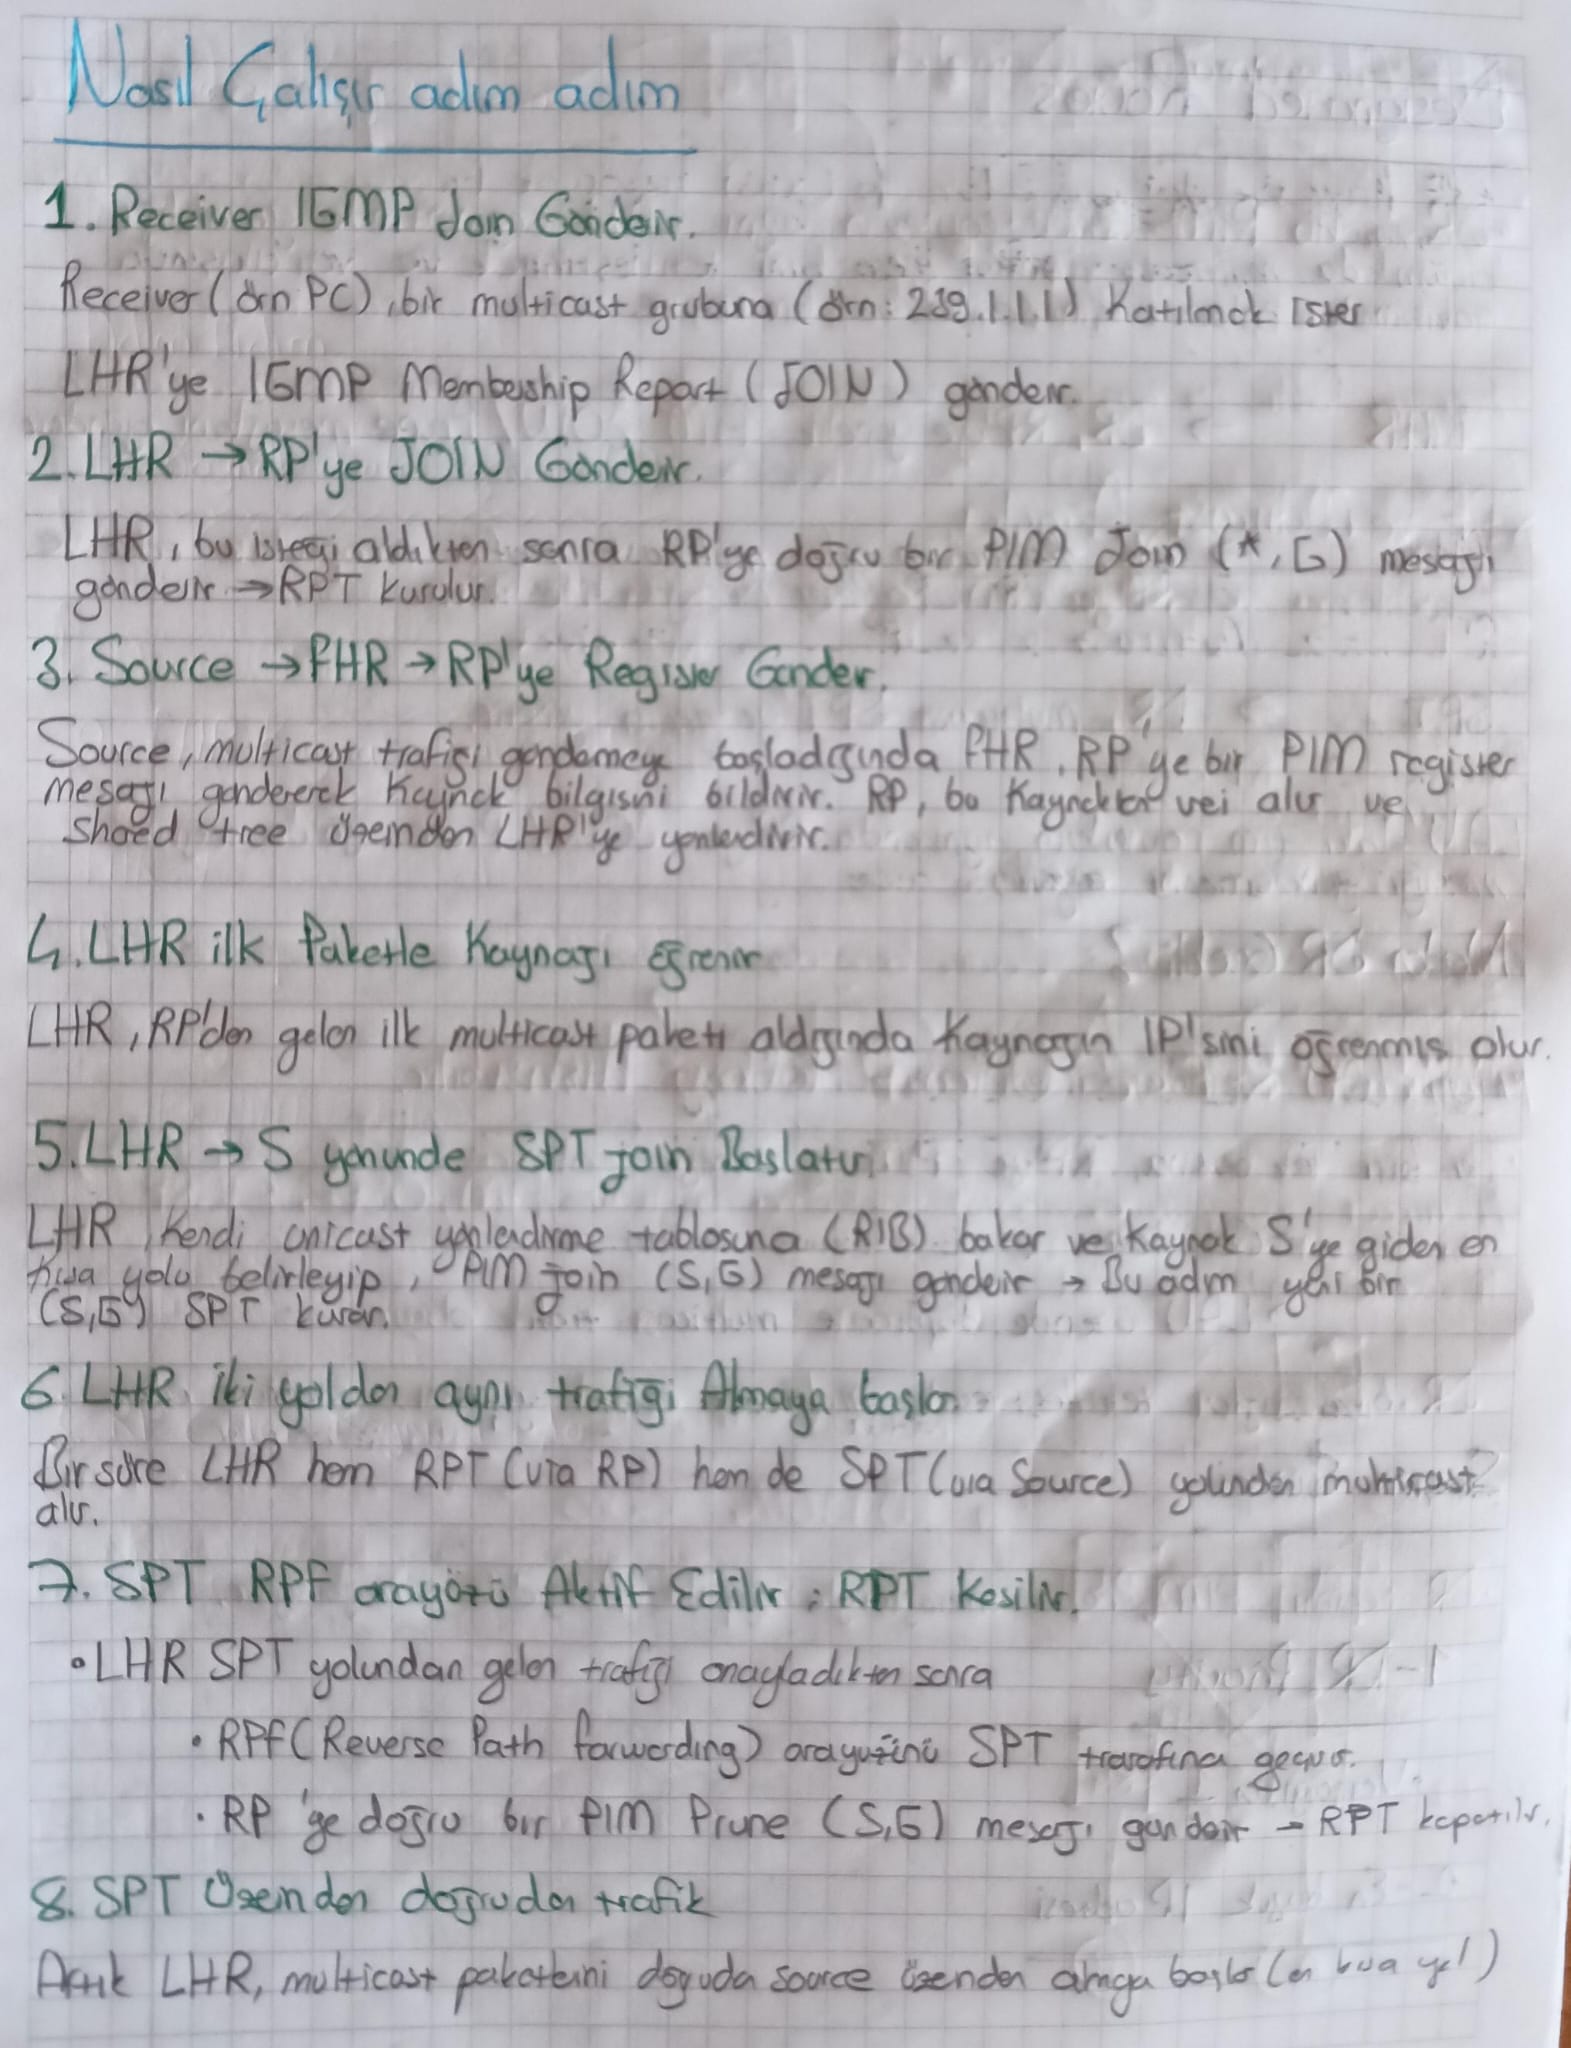 Nasıl Çalışır adım adım
1. Receiver IGMP Join Gönderir.
Receiver (örn PC), bir multicast grubuna (örn: 239.1.1.1) Katılmak ister
LHR'ye IGMP Membership Report (JOIN) gönderir.
2. LHR → RP'ye JOIN Gönderir.
LHR, bu isteği aldıktan sonra RP'ye doğru bir PIM Join (*, G) mesajı
gönderir → RPT kurulur.
3. Source → FHR → RP'ye Register Gönder.
Source, multicast trafiği göndermeye başladığında FHR, RP'ye bir PIM register
mesajı göndererek Kaynak bilgisini bildirir. RP, bu Kaynaktan veri alır ve
Shared tree üzerinden LHR'ye yönlendirir.
4. LHR ilk Paketle Kaynağı öğrenir
LHR, RP'den gelen ilk multicast paketi aldığında Kaynağın IP'sini öğrenmiş olur.
5. LHR → S yönünde SPT join Başlatır.
LHR, Kendi unicast yönlendirme tablosuna (RIB) bakar ve Kaynak S'ye giden en
kısa yolu belirleyip, PIM join (S,G) mesajı gönderir → Bu adım yeni bir
(S,G) SPT kurar.
6. LHR iki yoldan aynı trafiği Almaya başlar.
Bir süre LHR hem RPT (via RP) hem de SPT (via Source) yolundan multicast
alır.
7. SPT RPF arayüzü Aktif Edilir ; RPT Kesilir.
• LHR SPT yolundan gelen trafiği onayladıktan sonra
• RPF (Reverse Path forwarding) arayüzünü SPT tarafına geçirir.
• RP'ye doğru bir PIM Prune (S,G) mesajı gönderir → RPT kapatılır.
8. SPT Üzerinden doğrudan trafik
Artık LHR, multicast paketlerini doğruda source üzerinden almaya başlar (en kısa yol)